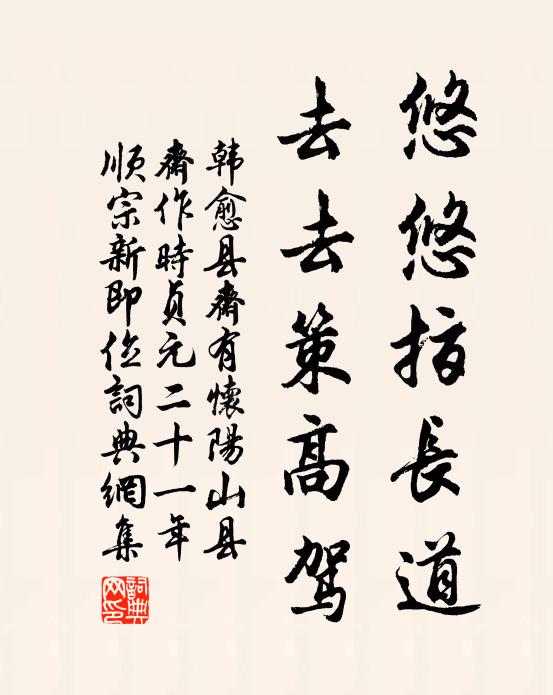 悠悠指長道
去去策高駕
韩愈县齋有懷陽山县
齋作時貞元二十一年
順宗新即位詞典網集
詞典网印